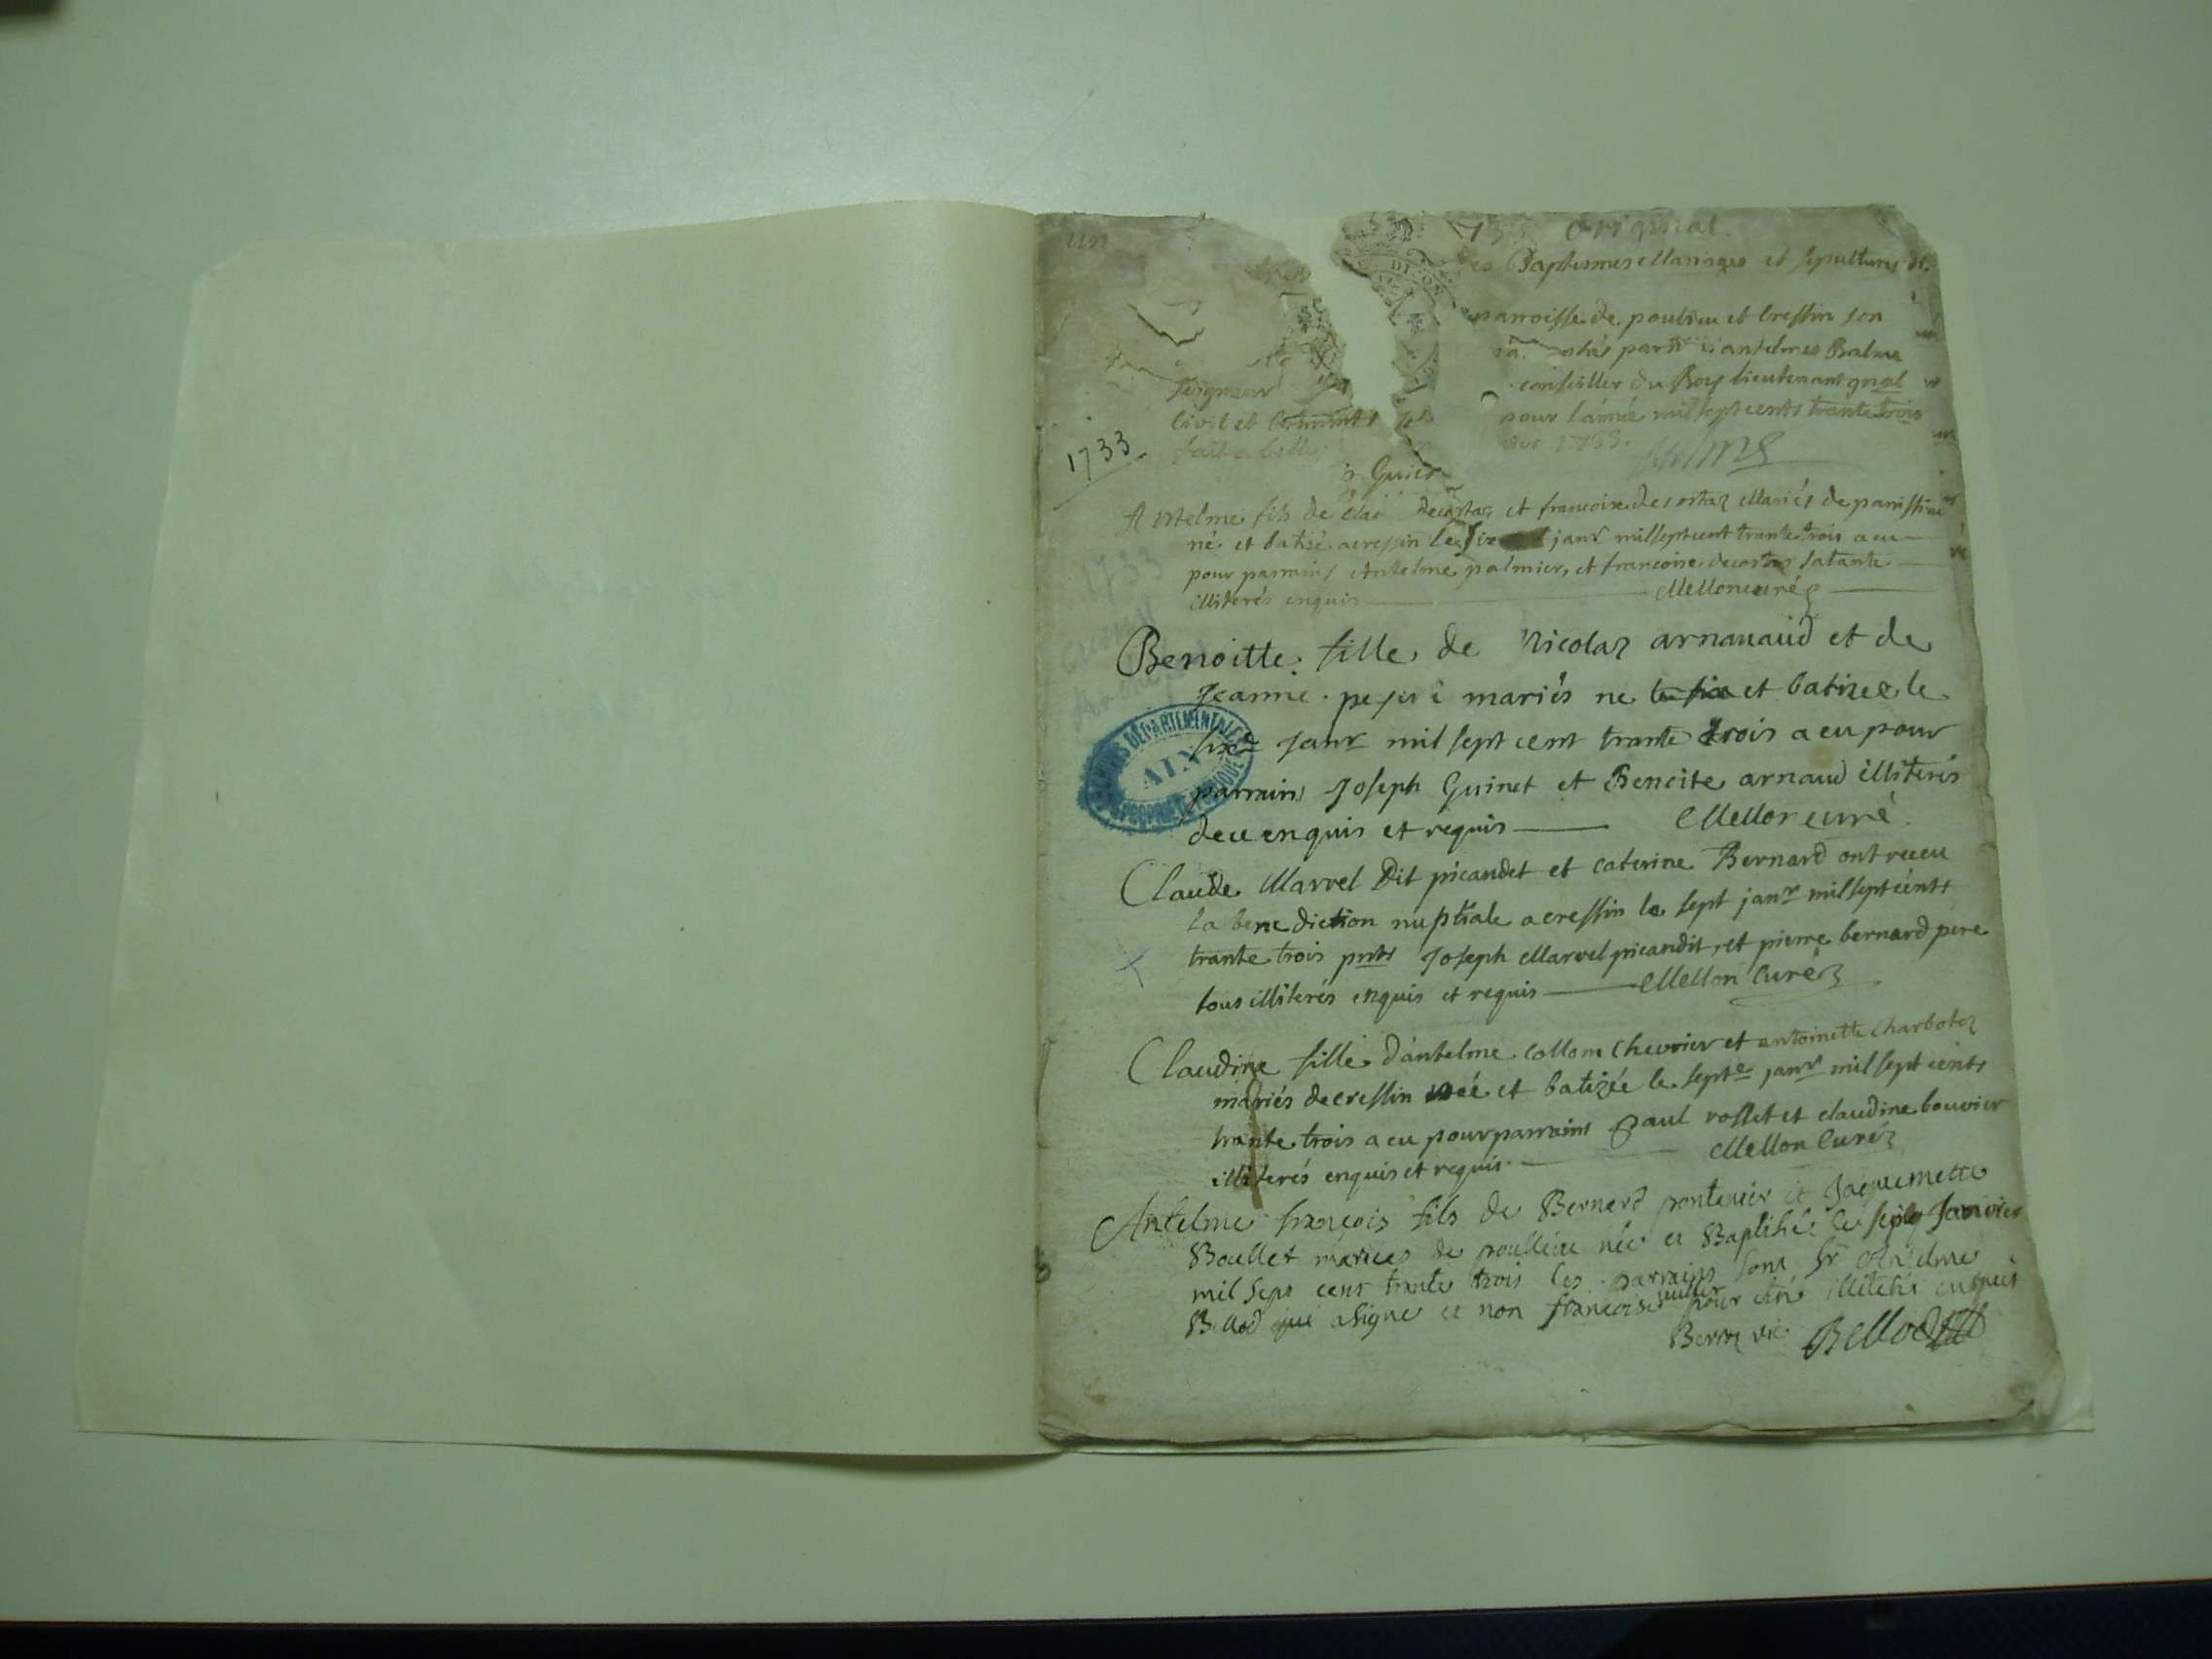 original
Baptesmes Mariages et sepultures de
DIJON
parroisse de poulieu et cressin son
par antelmes Balme
Seigneur conseiller du Roy lieutenant gnal
civil et pour l'année mil sept cents trante trois
fait a belle 1733.
1733
Guier
Antelme fils de decortaz et francoise decortaz Mariés de parissieu
né et batisé a cressin le janr mil sept cent trante trois a eu
pour parrains Antelme palmier, et francoise decortaz sa tante
illiterés enquis Mellon curé
1733
Benoitte fille de Nicolaz arnanaud et de
Jeanne mariés ne et batizee le
sixe janr mil sept cent trante trois a eu pour
parrains Joseph Guinet et Benoite arnaud illiterés
de ce enquis et requis Mellon curé
ARCHIVES DÉPARTEMENTALES
AIN
PROPRIÉTÉ PUBLIQUE
Claude Marvel Dit picandet et caterine Bernard ont receu
la benediction nuptiale a cressin le sept janr mil sept cents
trante trois pnts Joseph Marvel picandit, et pierre bernard pere
tous illiterés enquis et requis Mellon Curé
Claudine fille d'antelme collom Chevrier et antoinette Charbotez
mariés de cressin née et batizée le septe janr mil sept cents
trante trois a eu pour parrains paul rosset et claudine bouvier
illiterés enquis et requis Mellon Curé
Antelme françois fils de Bernard pontenier et Jaquemette
Boullet mariees de poullieu née et Baptisée le sept Janvier
mil sept cent trante trois les parrains sont Sr Antelme
Bellod qui a signé et non francoise pour etre illiteré enquis
Bellod